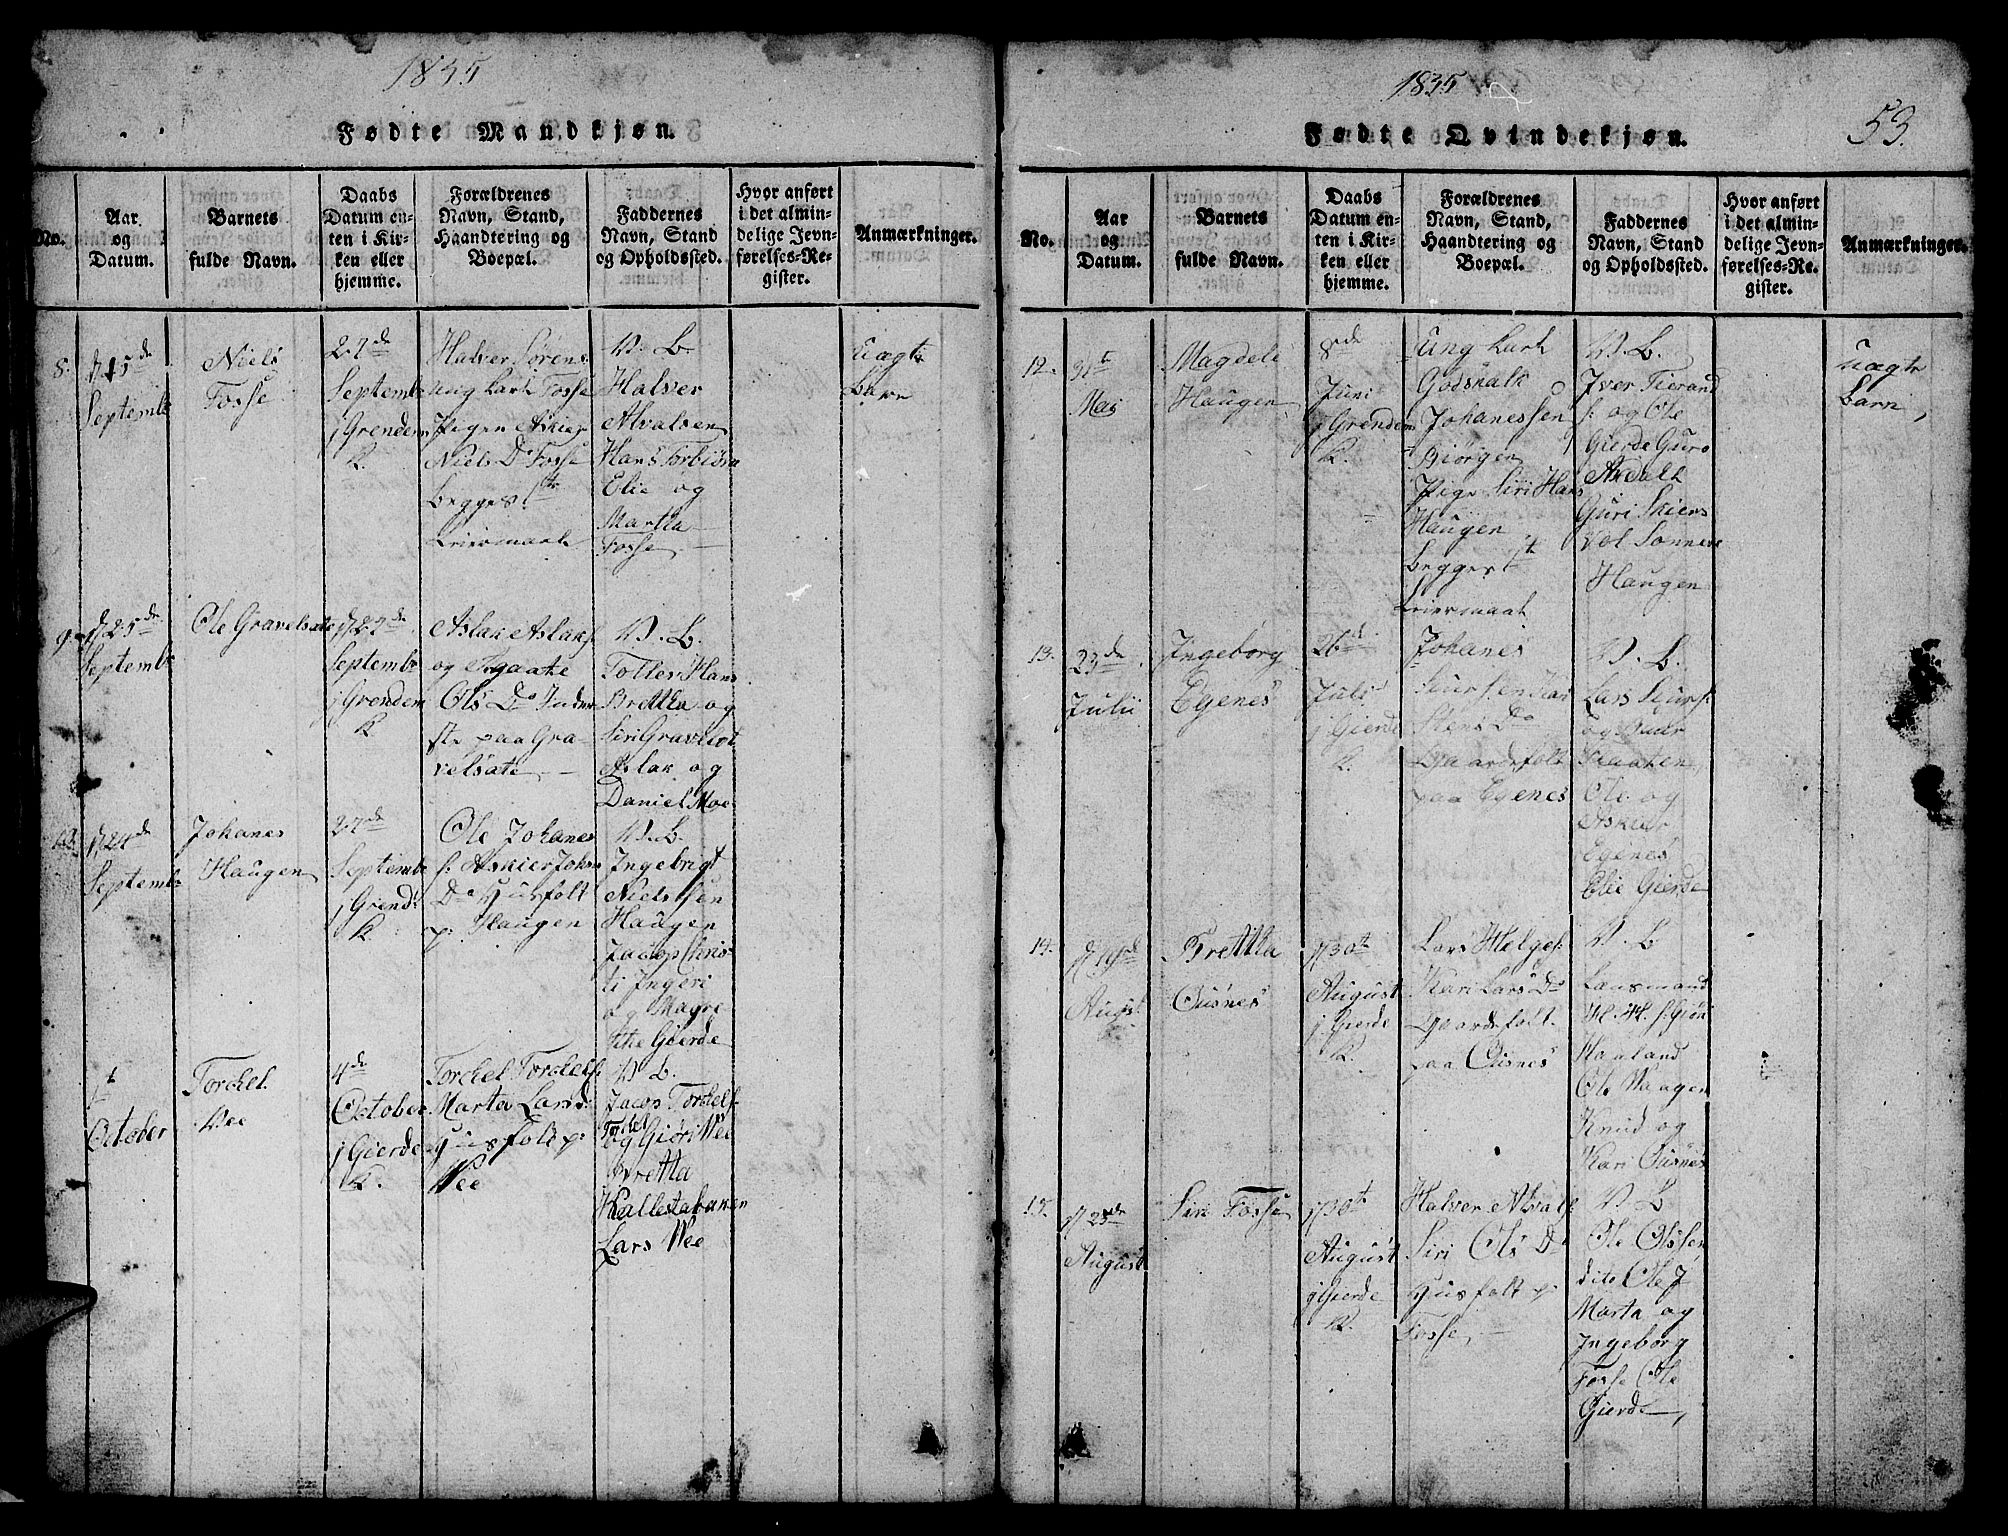 1835
Fødte Mandkjøn.
No.
Aar
og
Datum.
Barnets
fulde Navn.
Daabs
Datum en-
ten i Kir-
ken eller
hjemme.
Forældrenes
Navn, Stand,
Haandtering og
Boepæl.
Faddernes
Navn, Stand
og Opholdssted.
Hvor anført
i det almin-
delige Jevn-
førelses-Re-
gister.
Anmærkninger.
8.
15de
Septemb
Niels
Fosse
27de
Septembr
j Grendem
K.
Halver Sørens
ung karl Fosse
Pigen
Niels D. Fosse
begges
Leiermaal
V. L.
Halver
Alvalsen
Hans Torbiørn
Elie og
Martha
Fosse
uægte
barn
9
25de
Septemb
Ole Gravelsate
27de
Septembr
j Grendem
K
Aslak Aslaks
og Agaate
Ols D. Inder
ste paa Gra-
velsate
V. L.
Tollef Hans
Bretha og
Siri Gravelsat
Aslak og
Daniel Moe
10.
24de
Septemb
Johanes
Haugen
27de
Septembr
j Grend
K.
Ole Johanes
s. Askier Johs
D. Husfolk
p. Haugen
V. L.
Ingebrigt
Nielssen
Haugen
Jacop Chris-
ti Ingeri
og Magre
the Gierde
1t
October
Torchel
Vee
4de
October
j Gierde
K.
Torchel Torchels
Marta Lars d.
Husfolk p.
Vee
V. L.
Jacop Torchels
Torkel
og Giøri Vee
Bretta
Kallestabaken
Lars Vee
1835
53.
Fødte Qvindekjøn.
No.
Aar
og
Datum.
Barnets
fulde Navn.
Daabs
Datum en-
ten i Kir-
ken eller
hjemme.
Forældrenes
Navn, Stand,
Haandtering og
Boepæl.
Faddernes
Navn, Stand
og Opholdssted.
Hvor anført
i det almin-
delige Jevn-
førelses-Re-
gister.
Anmærkninger.
12.
31t
Maj
Magdeli
Haugen
8de
Juni
j Grendem
K.
Ung karl
Godskalk
Johanessen
Biørgen
Pige Siri Hans
Haugen
begges
Leiermaal
V. L.
Iver Tierand
s. og Ole
Gierde Guro
Ardalt
Guri Skiers
vol Sonneve
Haugen
uægte
barn,
13.
23de
Julii
Ingeborg
Egenes
26de
Juli
j Gierde
K.
Johanes
Siursen Kari
Stens D.
Gaardsfolk
paa Egenes
V. L.
Lars Siurs
og Guur
Kaaten
Ole og
Askier
Egenes
Elie Gierde
14.
19de
August
Bretha
Ousnes
30t
August
j Gierde
K.
Lars Helges
Kari Lars D.
Gaardsfolk
paa Ousnes
V. L.
Lansmand
H. H. s. Giøri
Haaland
Ole Haugen
Knud og
Kari Ousnes
15.
23de
August
Siri Fosse
30t
August
j Gierde
K.
Halver Alvals
Siri Ols D.
Husfolk p.
Fosse
V. L.
Ole Olssen
dito Ole J
Marta og
Ingeborg
Fosse Ole
Gierde,